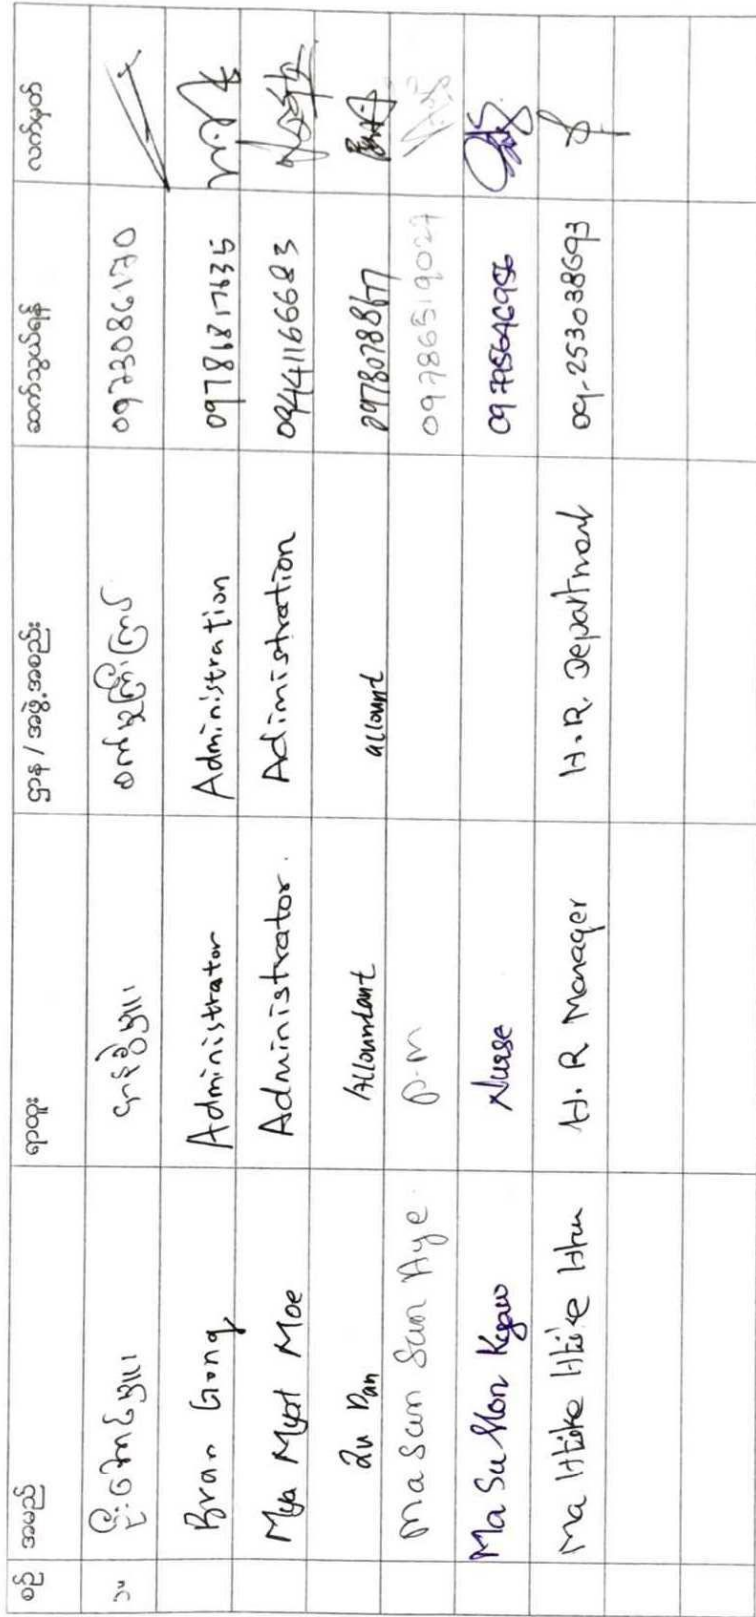 စဉ် အမည် ရာထူး ဌာန / အဖွဲ့အစည်း ဖုန်းနံပါတ် လက်မှတ်
၁။ 0973086170
Bran Gong Administrator Administration 09786817635
Mya Myat Moe Administrator. Adimistration 09441166683
Zu Pan Accountant account 09780788677
Ma San San Aye P.M 09786519027
Ma Su Mon Kyaw Nurse
Ma Htike Htike Htun H.R Manager H.R. Department 09-253038693